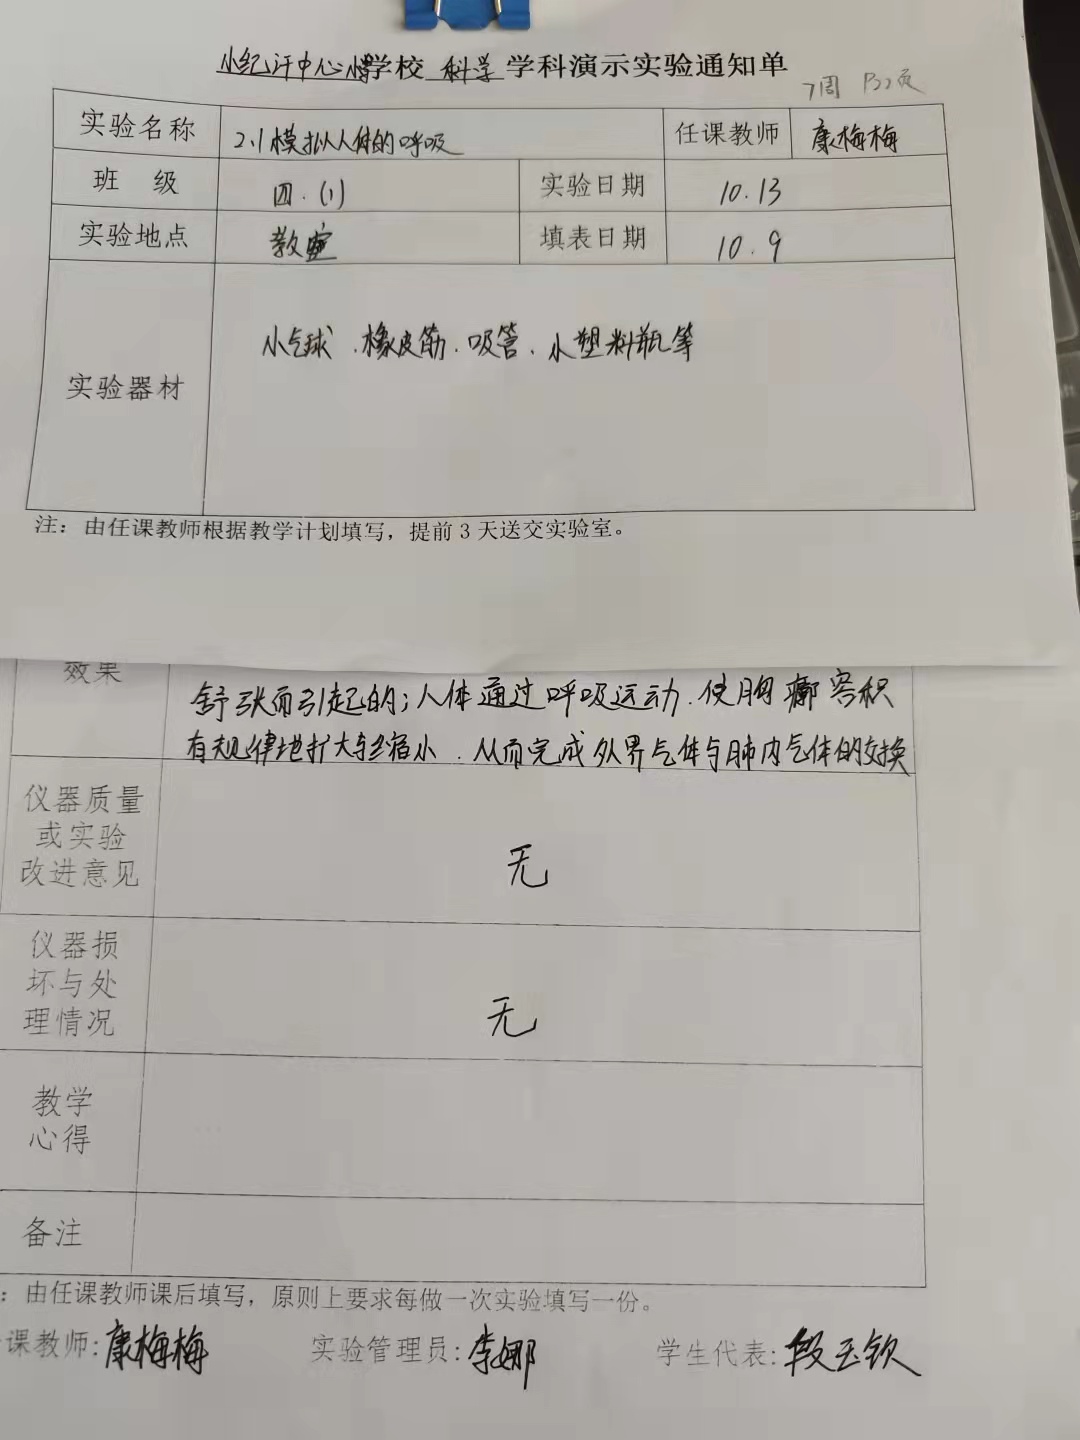 小纪汗中心小学学校 科学 学科演示实验通知单
7周 P22页
实验名称 2.1模拟人体的呼吸 任课教师 康梅梅
班 级 四.(1) 实验日期 10.13
实验地点 教室 填表日期 10.9
实验器材 小气球.橡皮筋.吸管.小塑料瓶等
注：由任课教师根据教学计划填写，提前3天送交实验室。
效果 舒张而引起的;人体通过呼吸运动.使胸廓容积
有规律地扩大与缩小.从而完成外界气体与肺内气体的交换
仪器质量
或实验
改进意见
无
仪器损
坏与处
理情况
无
教学
心得
备注
：由任课教师课后填写，原则上要求每做一次实验填写一份。
课教师:康梅梅 实验管理员:李娜 学生代表:段玉钦